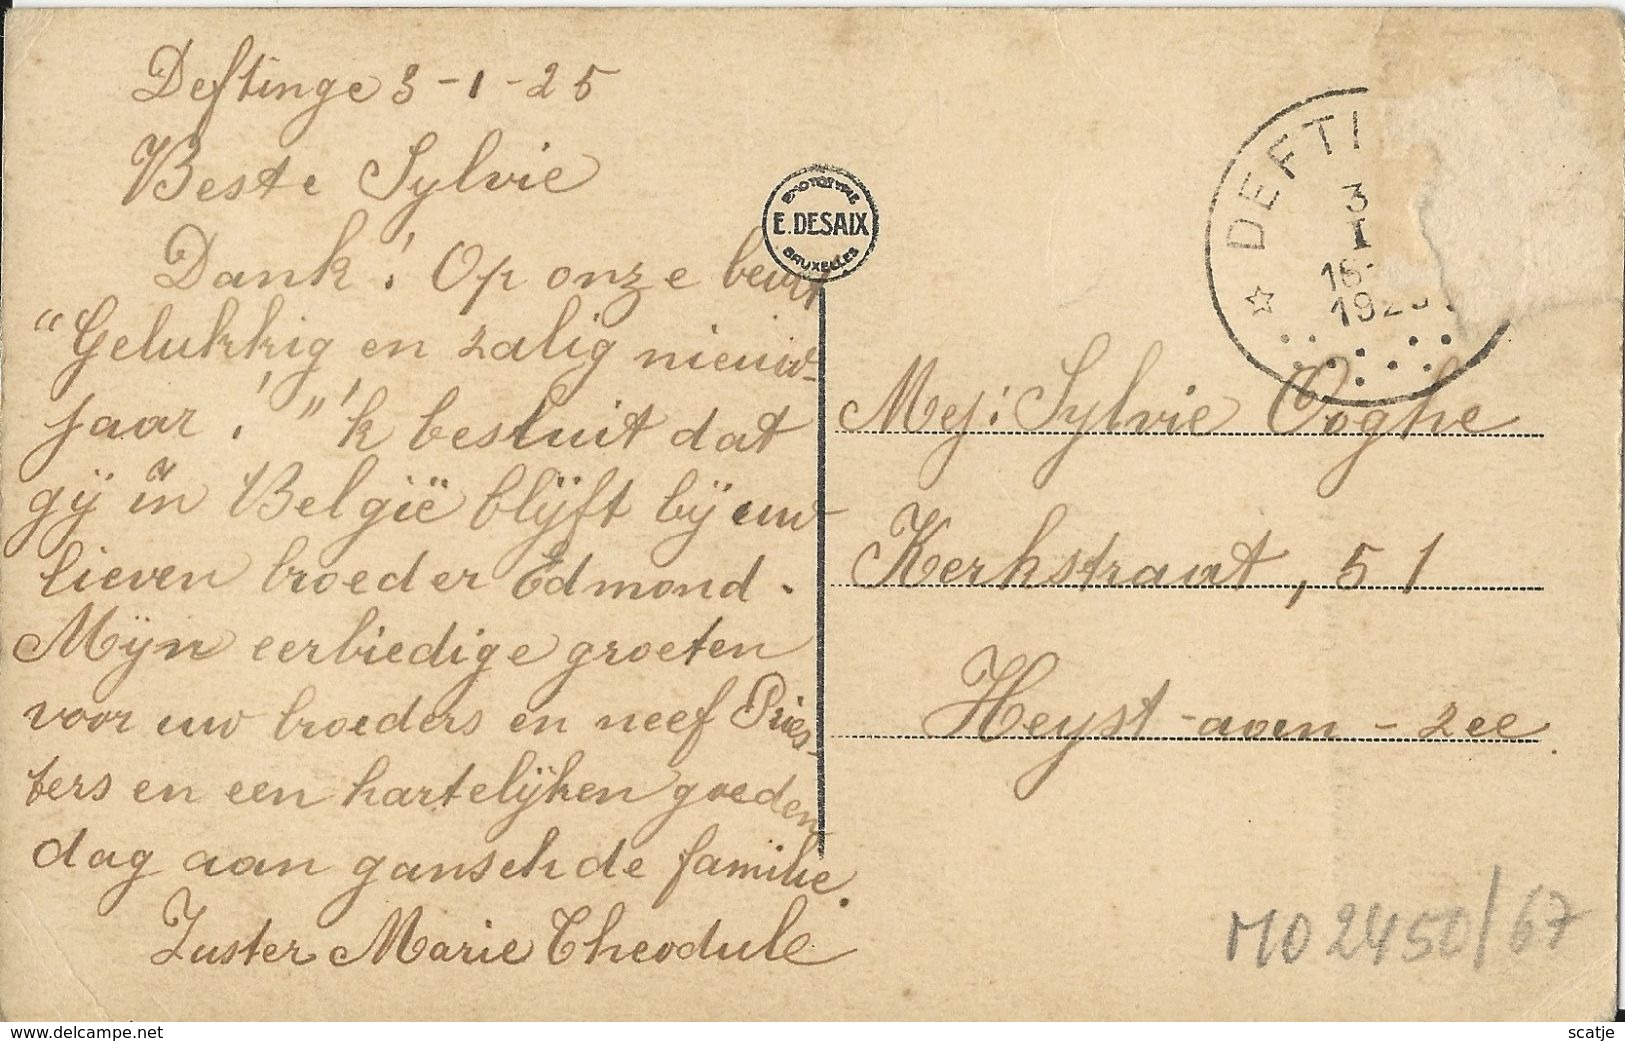 Deftinge 3-1-25
Beste Sylvie
Dank! Op onze beurt
"Gelukkig en zalig nieuw-
jaar!" 'k besluit dat
gij in België blijft bij uw
lieven broeder Edmond.
Mijn eerbiedige groeten
voor uw broeders en neef Pries-
ters en een hartelijken goeden
dag aan gansch de familie.
Zuster Marie Theodule
PHOTOTYPIE
E. DESAIX
BRUXELLES
DEFTI
3
I
16-
192
Mej: Sylvie Ooghe
Kerkstraat, 51
Heyst-aan-zee.
MO2450/67
www.delcampe.net
scatje